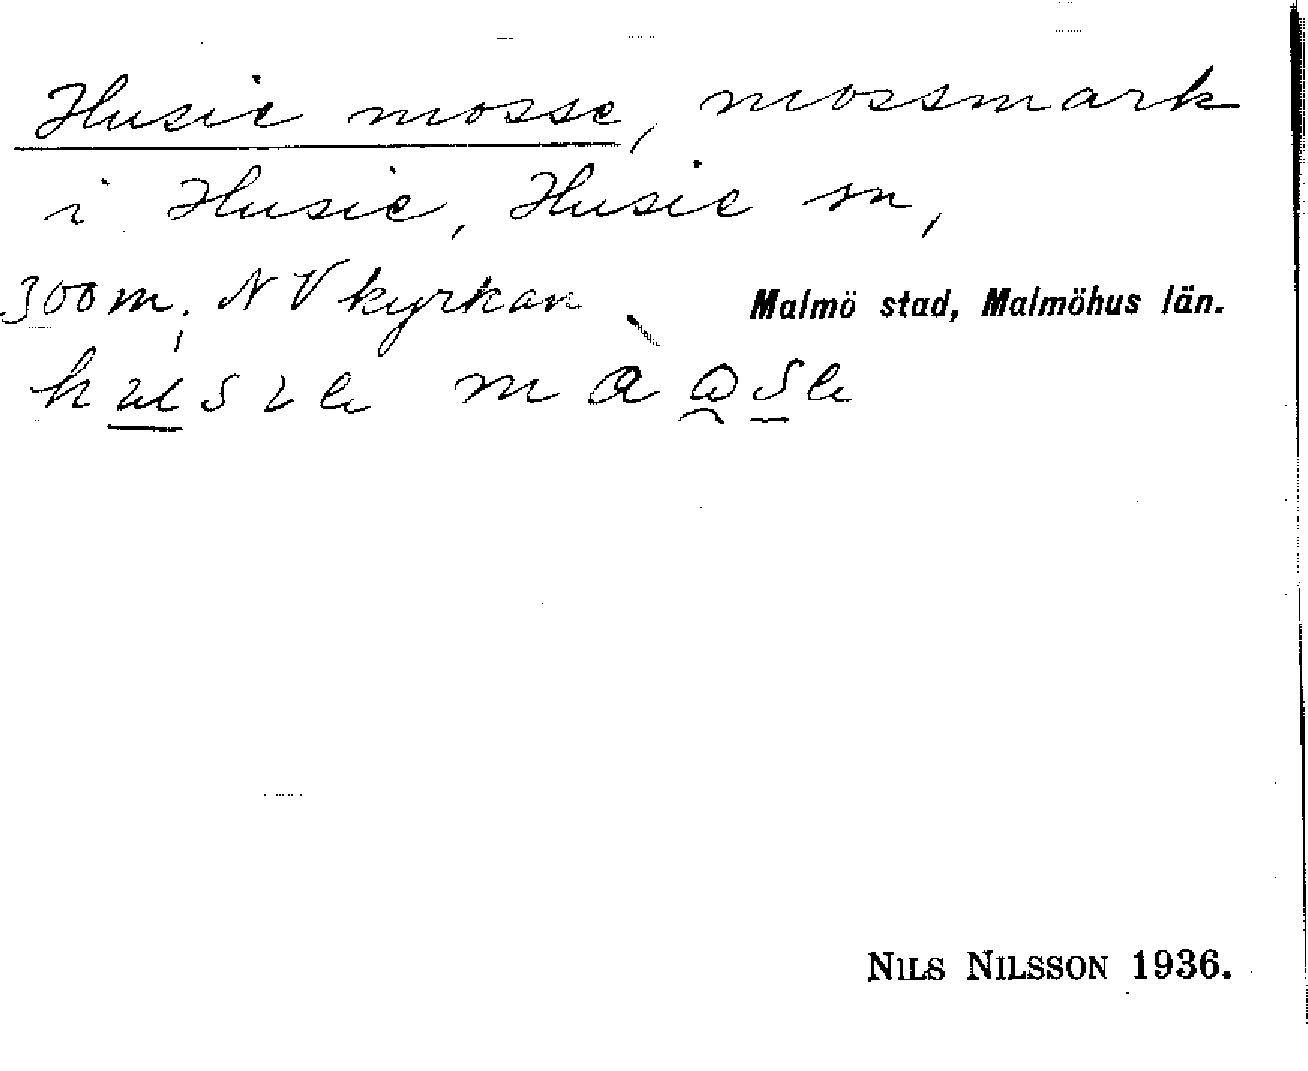 Husie mosse, mossmark
i Husie, Husie sn,
300 m. NV kyrkan
Malmö stad, Malmöhus län.
NILS NILSSON 1936.